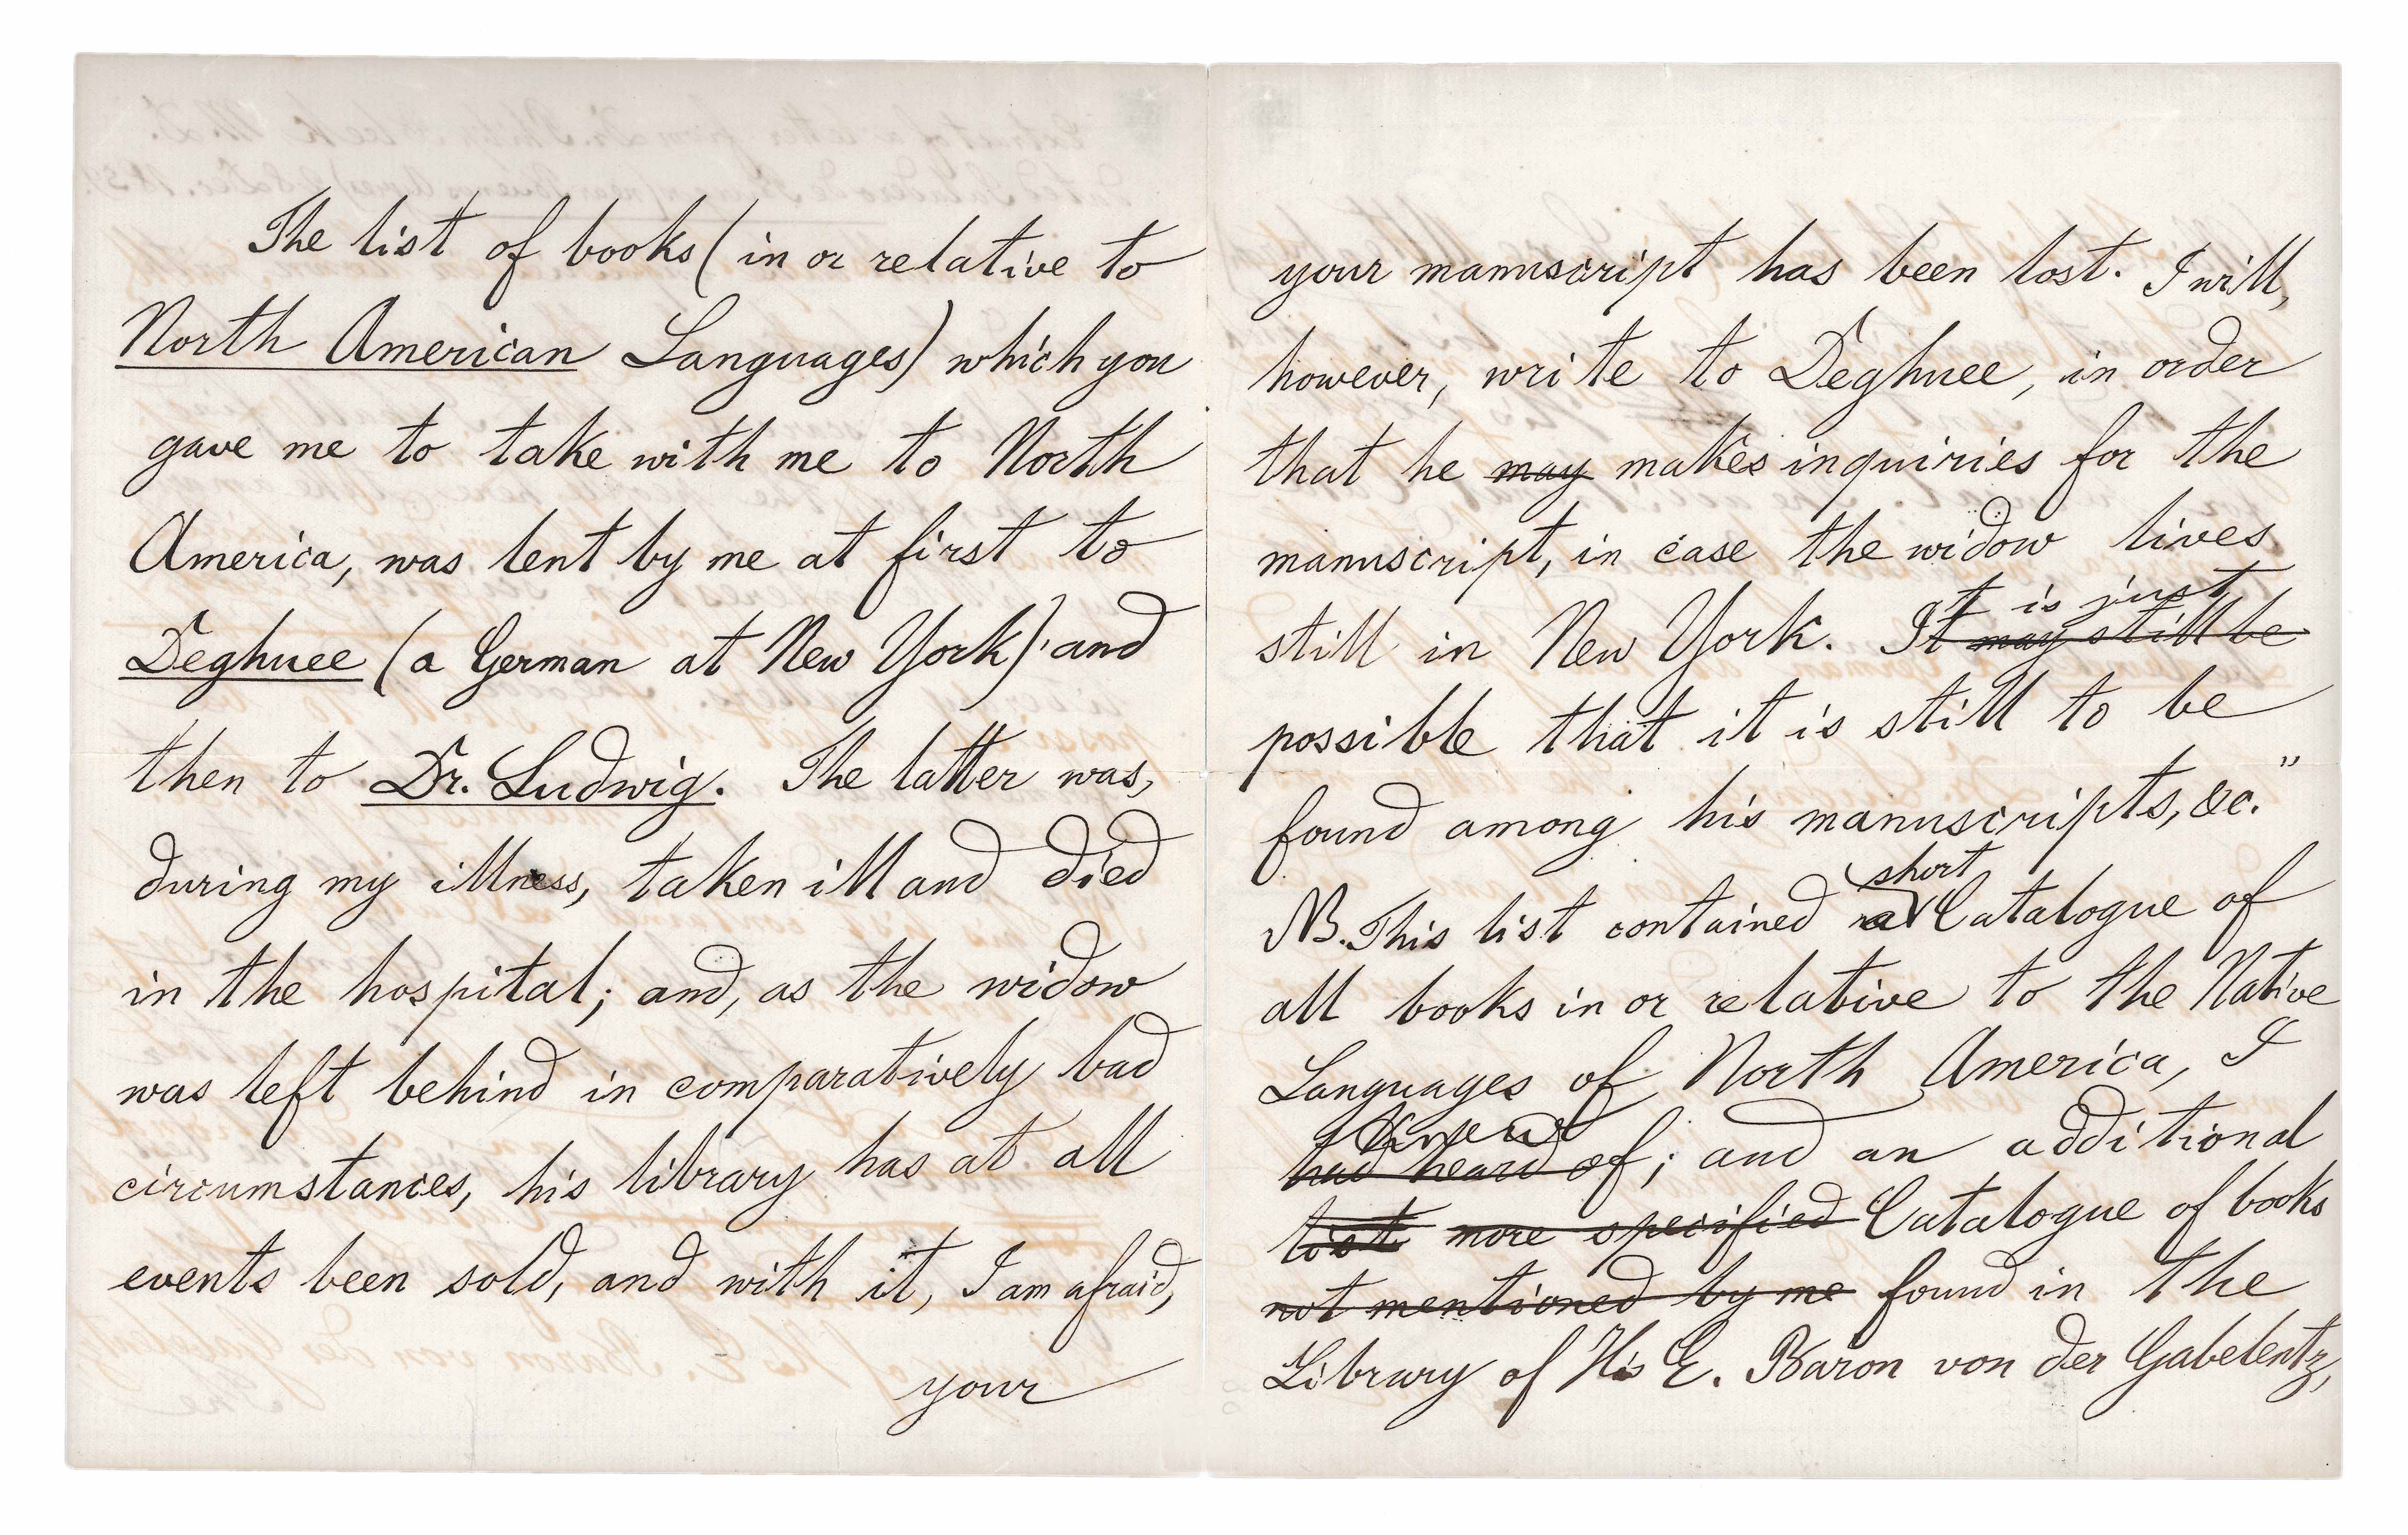 The list of books (in or relative to
North American Languages) which you
gave me to take with me to North
America, was lent by me at first to
Deghuee (a German at New York) and
then to Dr. Ludwig. The latter was,
during my illness, taken ill and died
in the hospital; and, as the widow
was left behind in comparatively bad
circumstances, his library has at all
events been sold, and with it, I am afraid,
your
your manuscript has been lost. I will,
however, write to Deghuee, in order
that he may makes inquiries for the
manuscript, in case the widow lives
still in New York. It may still be
t is just
possible that it is still to be
found among his manuscripts, &c."
short
NB. This list contained a Catalogue of
all books in or relative to the Native
Languages of North America, I
knew
had heard of; and an additional
list more specified Catalogue of books
not mentioned by me found in the
Library of His E. Baron von der Gabelentz,